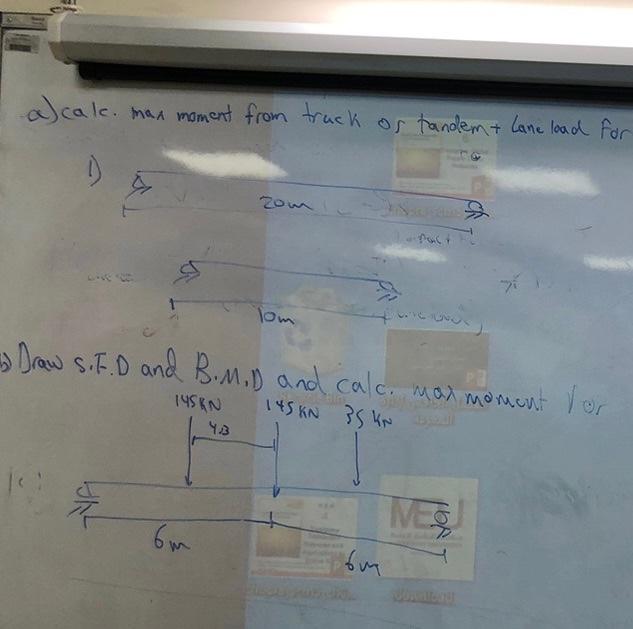 a) calc. max moment from truck or tandem + Lane load for
1)
20m
10m
b) Draw S.F.D and B.M.D and calc. max moment for
145KN 145KN 35KN
4.3
MEU
6m
6m